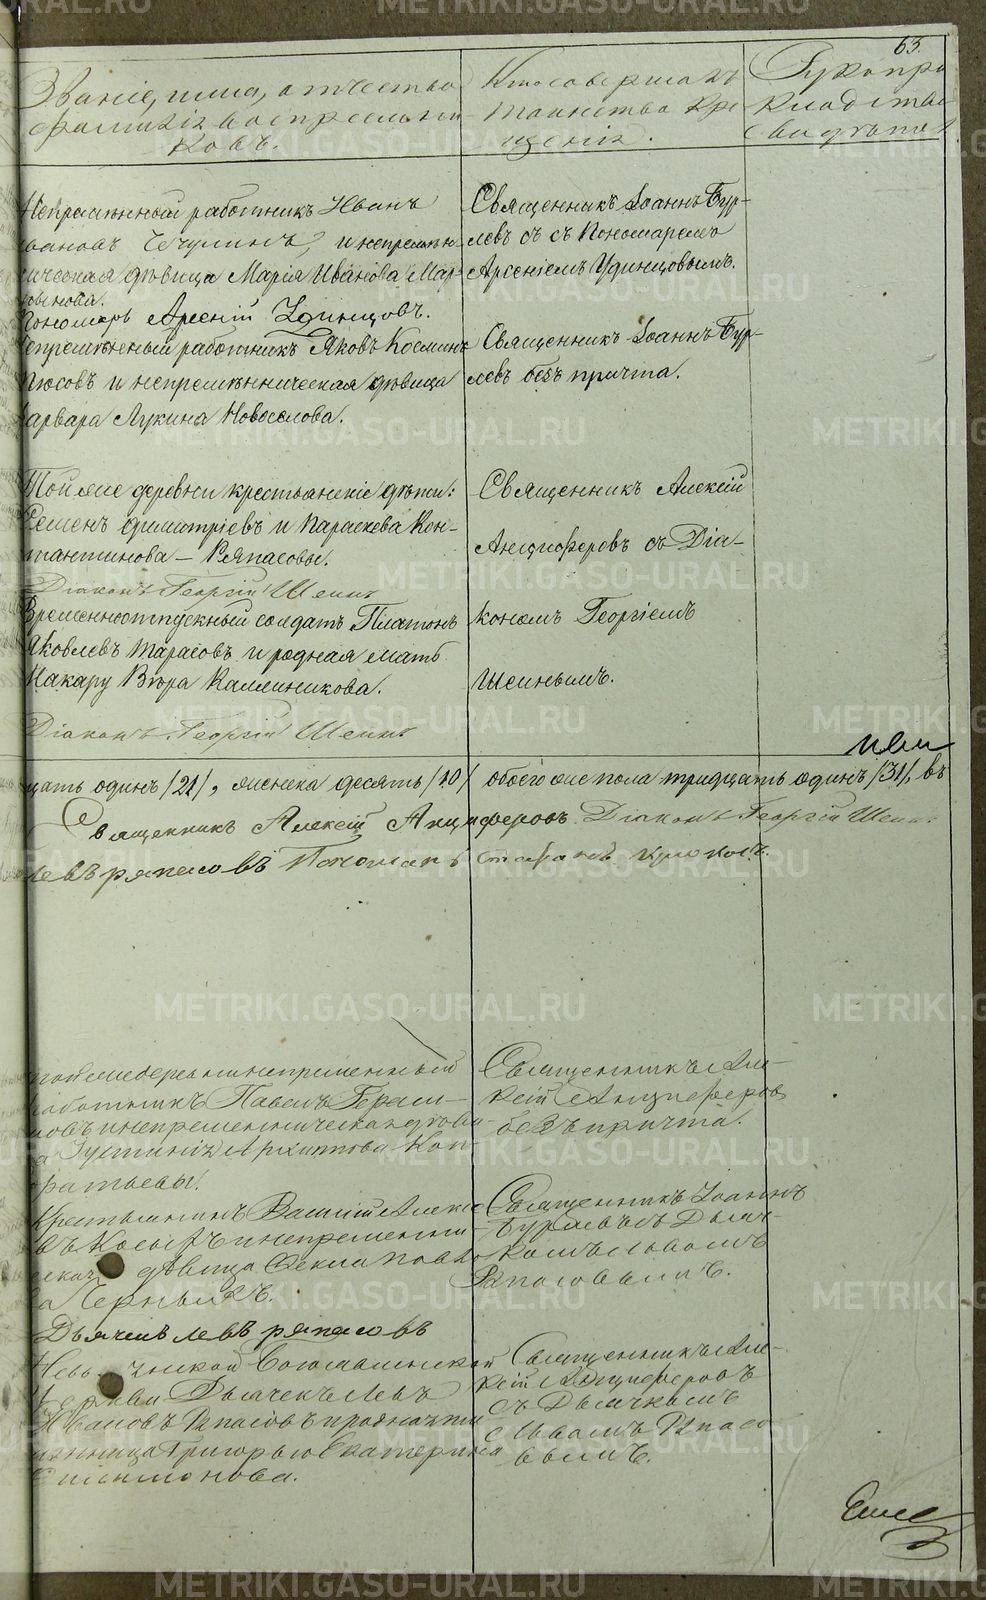 63.
Званіе, имя, отчество
фамилія воспреемни
ковъ.
Кто совершалъ
таинство кре
щенія.
Рукопри
кладство
свидѣтел
Непремѣнной работникъ Иванъ
вановъ Чечулинъ, и непремѣн-
ническая дѣвица Марія Иванова Мар-
тынова.
Пономарь Арсеній Удинцовъ.
Священникъ Іоаннъ Бур-
левъ съ съ Пономаремъ
Арсеніемъ Удинцовымъ.
епремѣнный работникъ Яковъ Косминъ
и непремѣнническая дѣвица
арвара Лукина Новоселова.
Священникъ Іоаннъ Бур-
левъ безъ причта.
Той же деревни крестьянскіе дѣти:
Семенъ Димитріевъ и Параскева Кон-
стантинова – Ряпасовы.
Діаконъ Георгій Шеинъ
Временноотпускный солдатъ Платонъ
Яковлевъ Тарасовъ и родная мать
Макару Вѣра Каллиникова.
Діаконъ Георгій Шеинъ
Священникъ Алексій
Анциферовъ съ Діа-
кономъ Георгіемъ
Шеинымъ.
цать одинъ /21/, женска десять /10/ обоего же пола тридцать одинъ /31/, въ
Священникъ Алексій Анциферовъ Діаконъ Георгій Шеинъ
Левъ ряпасовъ Пономарь
той же деревни непременный
работникъ Павелъ Гераси-
мовъ и непременническая дѣви
ца Іустинія Архипова Кон-
дратьевы.
Священникъ Але-
ксій Анциферовъ
безъ причта.
Крестьянинъ Василій Алекс
въ Косыхъ и непременни
ческая дѣвица Ѳекла Павло
ва Черныхъ.
Дьячекъ левъ ряпасовъ
Священникъ Іоаннъ
Бурлевъ съ Дьяч-
комъ Львомъ
Ряпасовымъ.
Невь нской Богоявленской
Церкви Дьячекъ Левъ
Ивановъ Ряпасовъ и
Григорью Екатерина
Священникъ Але-
ксій Анциферовъ
съ Дьячкомъ
Львомъ Ряпасо
вымъ.
METRIKI.GASO-URAL.RU